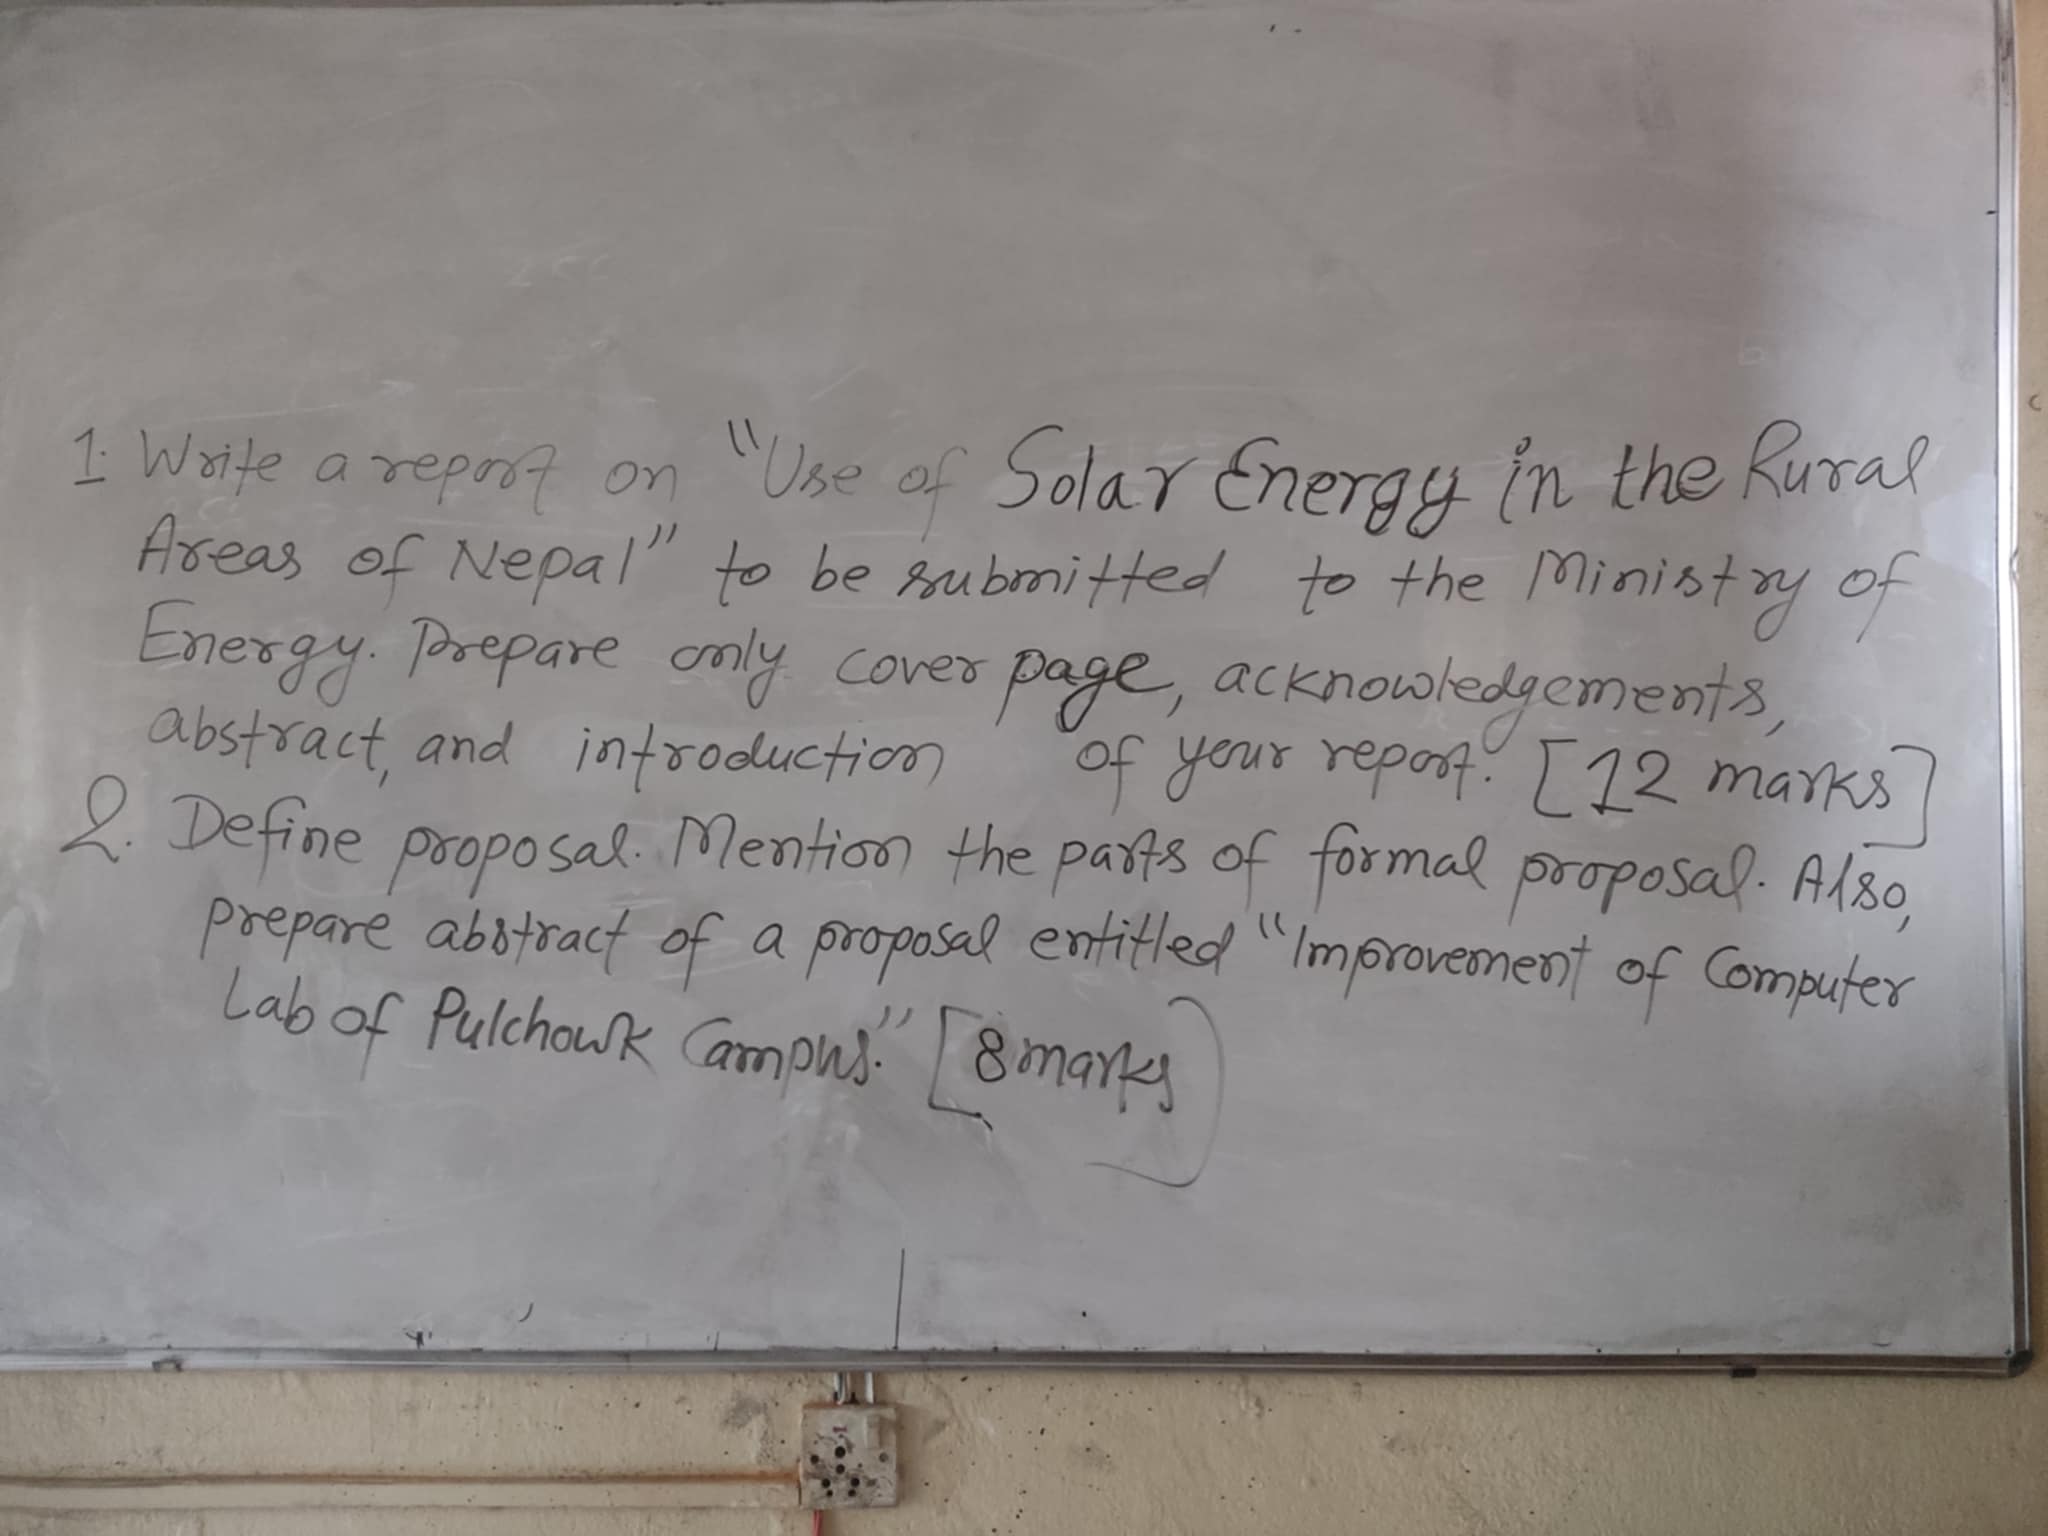 1. Write a report on "Use of Solar Energy in the Rural
Areas of Nepal" to be submitted to the Ministry of
Energy. Prepare only cover page, acknowledgements,
abstract, and introduction of your report. [12 marks]
2. Define proposal. Mention the parts of formal proposal. Also,
prepare abstract of a proposal entitled "Improvement of Computer
Lab of Pulchowk Campus." [8 marks]